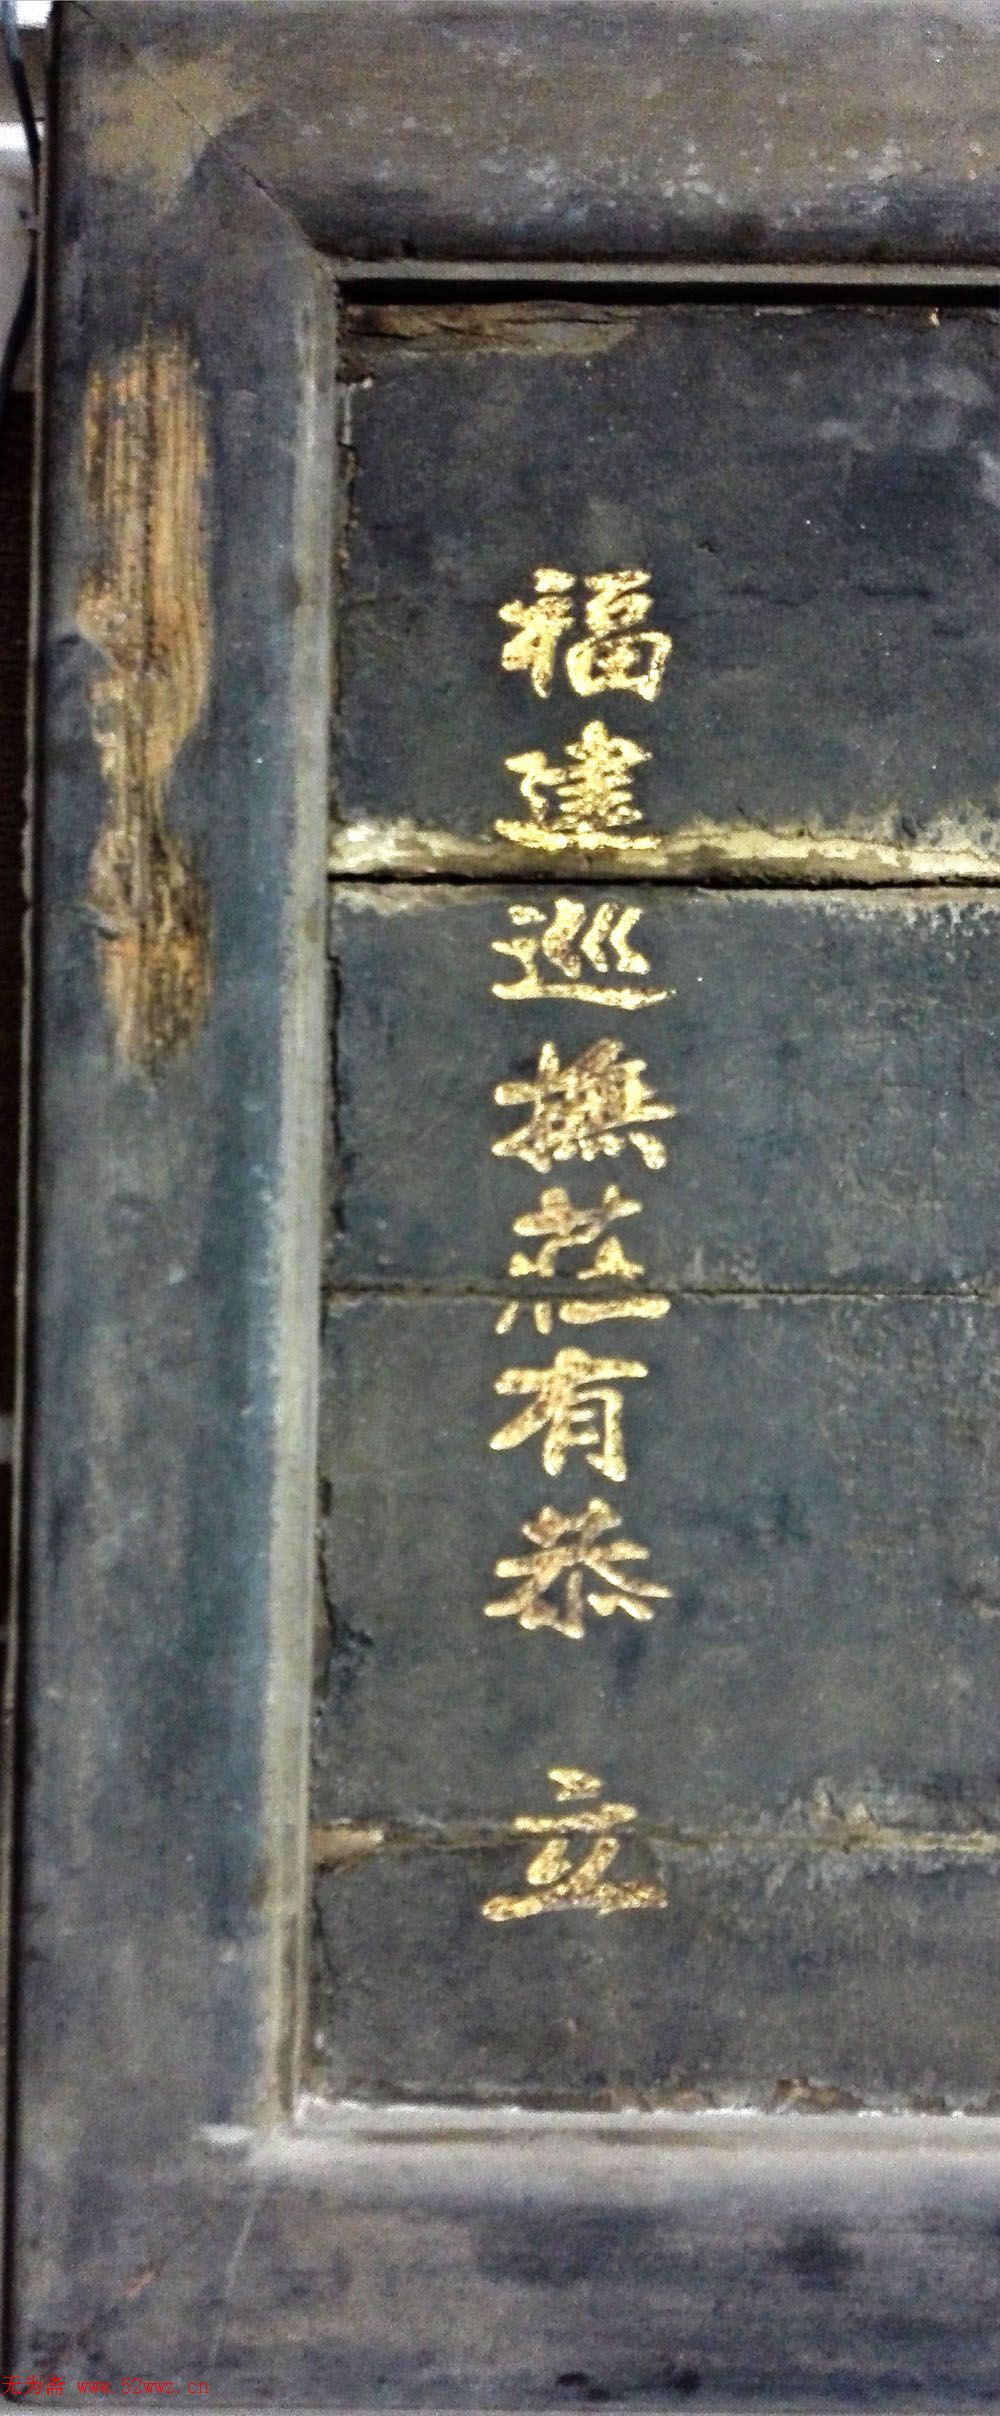 福建巡撫莊有恭 立
无为斋 www.52wwz.cn